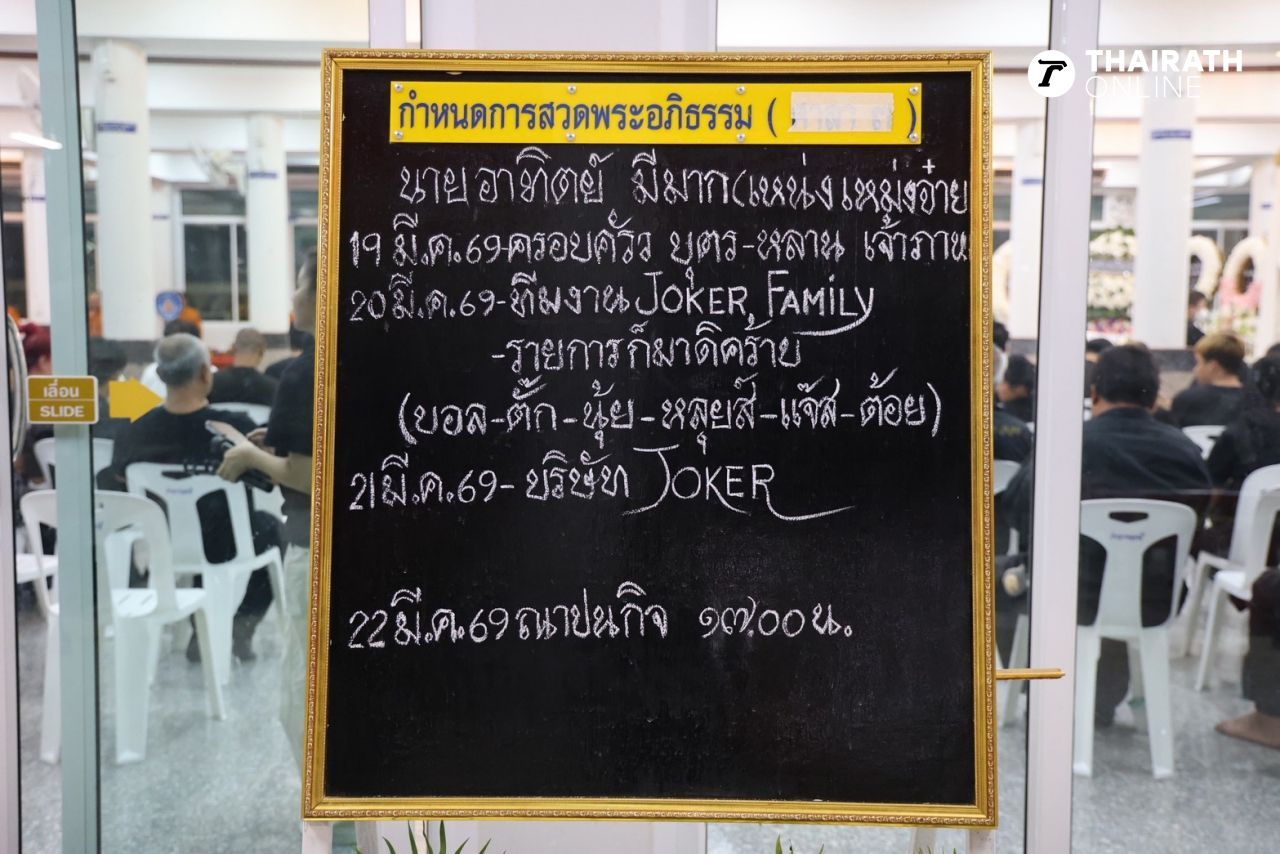 THAIRATH
ONLINE
กำหนดการสวดพระอภิธรรม ( )
นายอาทิตย์ มีมาก(เหน่งเหม่ง
19 มี.ค.69-ครอบครัว บุตร-หลาน เจ้าภาพ
20 มี.ค.69-ทีมงาน JOKER FAMiLY
-รายการก็มาดิคร้าบ
(บอล-ตั๊ก-นุ้ย-หลุยส์-แจ๊ส-ต้อย)
21 มี.ค.69- บริษัท JOKER
22 มี.ค.69 ฌาปนกิจ ๑๗.๐๐ น.
เลื่อน
SLIDE